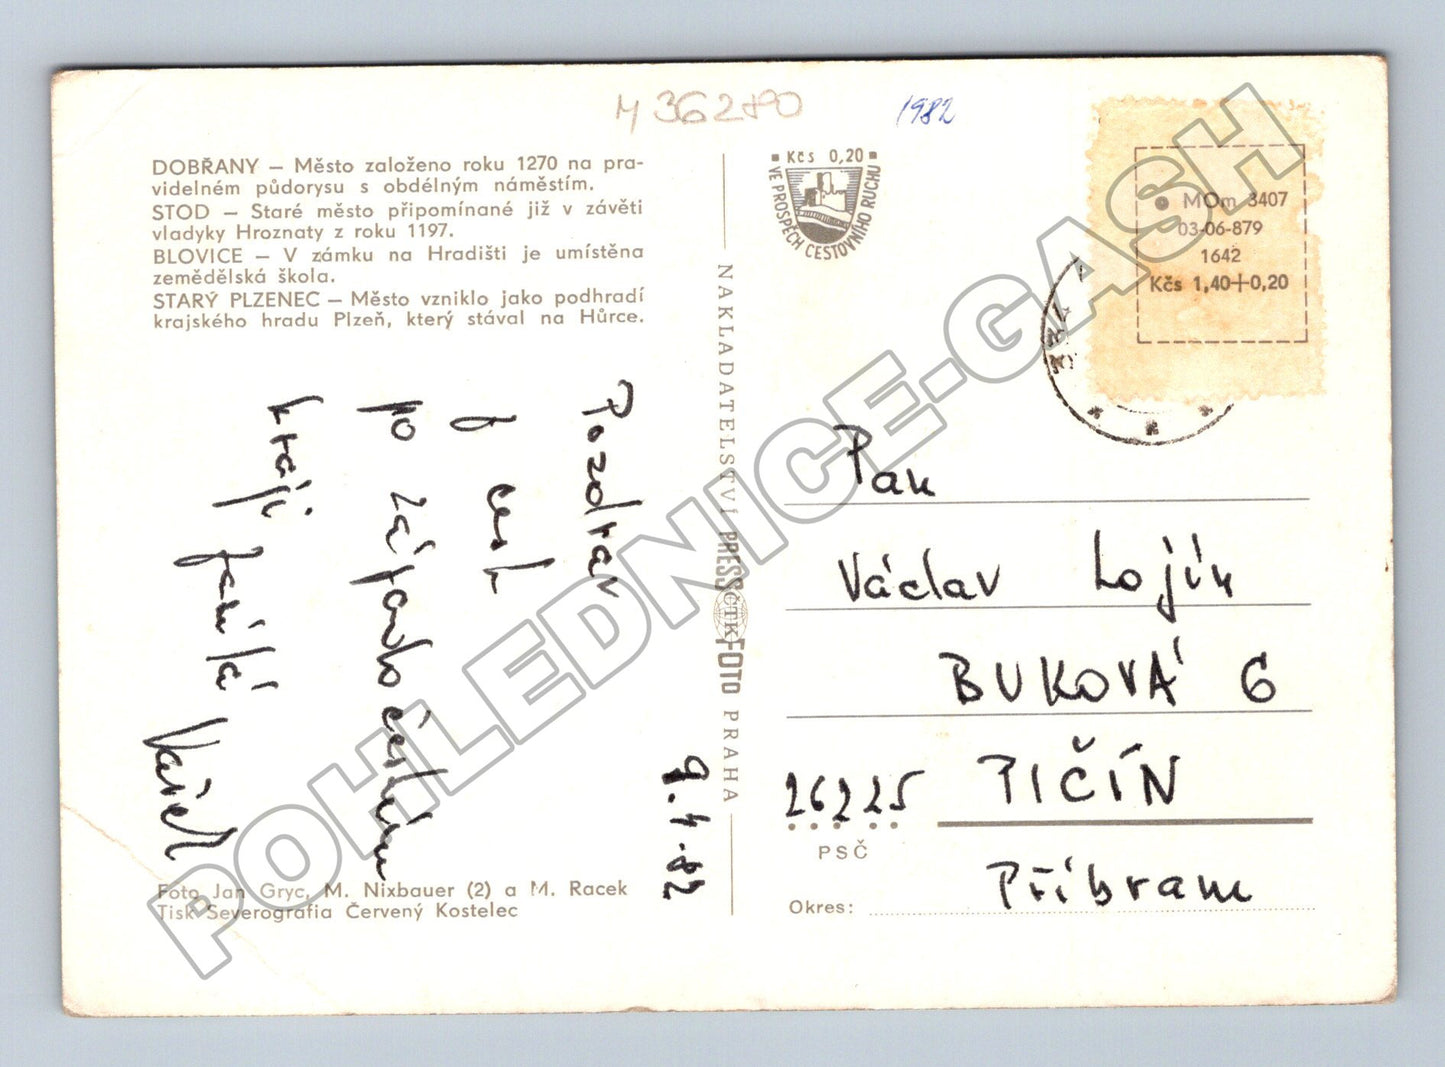 M 36280
1982
DOBŘANY – Město založeno roku 1270 na pra-
videlném půdorysu s obdélným náměstím.
STOD – Staré město připomínané již v závěti
vladyky Hroznaty z roku 1197.
BLOVICE – V zámku na Hradišti je umístěna
zemědělská škola.
STARÝ PLZENEC – Město vzniklo jako podhradí
krajského hradu Plzeň, který stával na Hůrce.
Pozdrav
z cest
po západočeském
kraji zasílá
9.4.82
Foto Jan Gryc, M. Nixbauer (2) a M. Racek
Tisk Severografia Červený Kostelec
NAKLADATELSTVÍ PRESSFOTO PRAHA
ČTK
Kčs 0,20
VE PROSPĚCH CESTOVNÍHO RUCHU
MOm 3407
03-06-879
1642
Kčs 1,40+0,20
Pan
Václav Lojín
BUKOVÁ 6
26225 PIČÍN
PSČ
Příbram
Okres:
POHLEDNICE-GASH